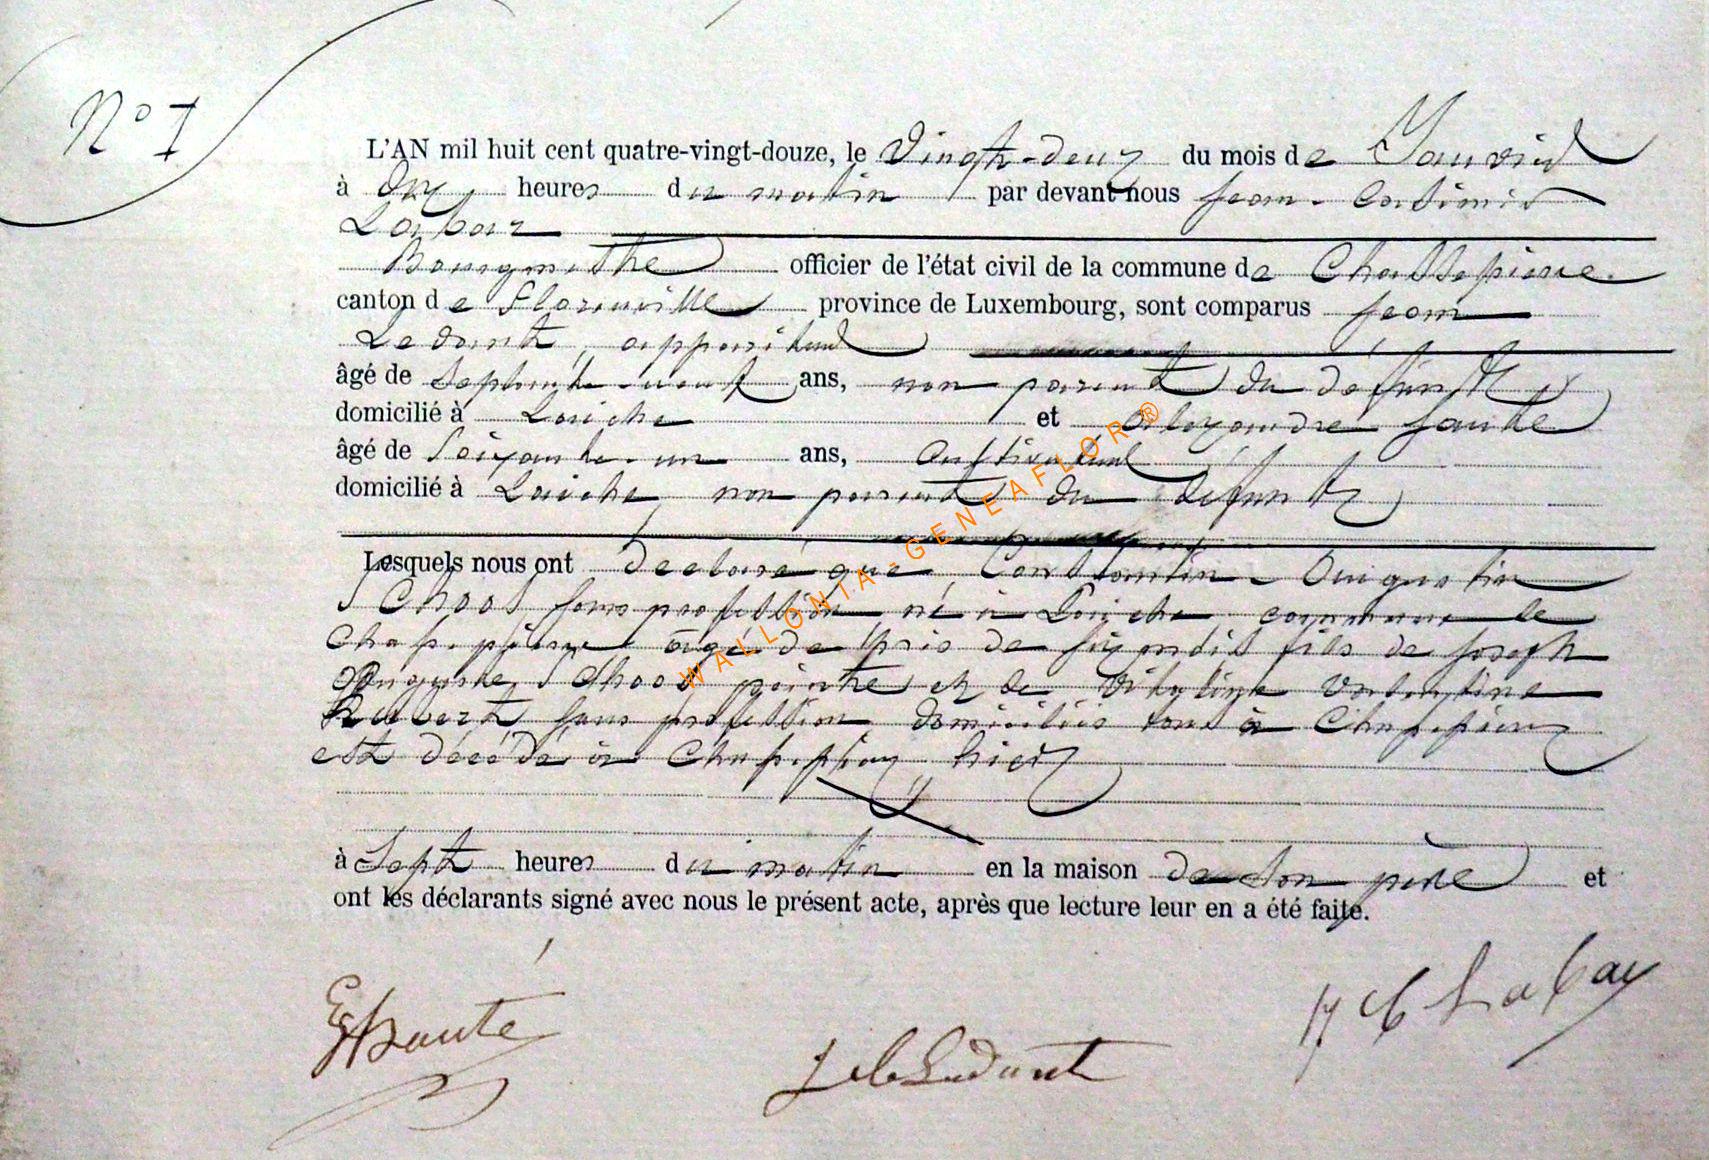 N° 1
L'AN mil huit cent quatre-vingt-douze, le Vingt-deux du mois de Janvier
à dix heures du matin par devant nous Jean-Casimir
Labaz
Bourgmestre officier de l'état civil de la commune de Chassepierre
canton de Florenville province de Luxembourg, sont comparus Jean
Ledant, appariteur
âgé de Septante-neuf ans, non parent du défunt
domicilié à Laiche et alexandre Sauté
âgé de Soixante-un ans, Cultivateur
domicilié à Laiche, non parent du défunt
Lesquels nous ont declaré que Constantin-Augustin
Schoos sans profession né à Laiche commune de
Chassepierre âgé de trois de six mois fils de Joseph
Auguste Schoos peintre et de Valentine
Hubert sans profession domiciliés tous à Chassepierre
est décédé à Chassepierre hier
à Sept heures du matin en la maison de son père et
ont les déclarants signé avec nous le présent acte, après que lecture leur en a été faite.
Sauté
Ledant
Labay
WALLONIA-GENEAFLOR®